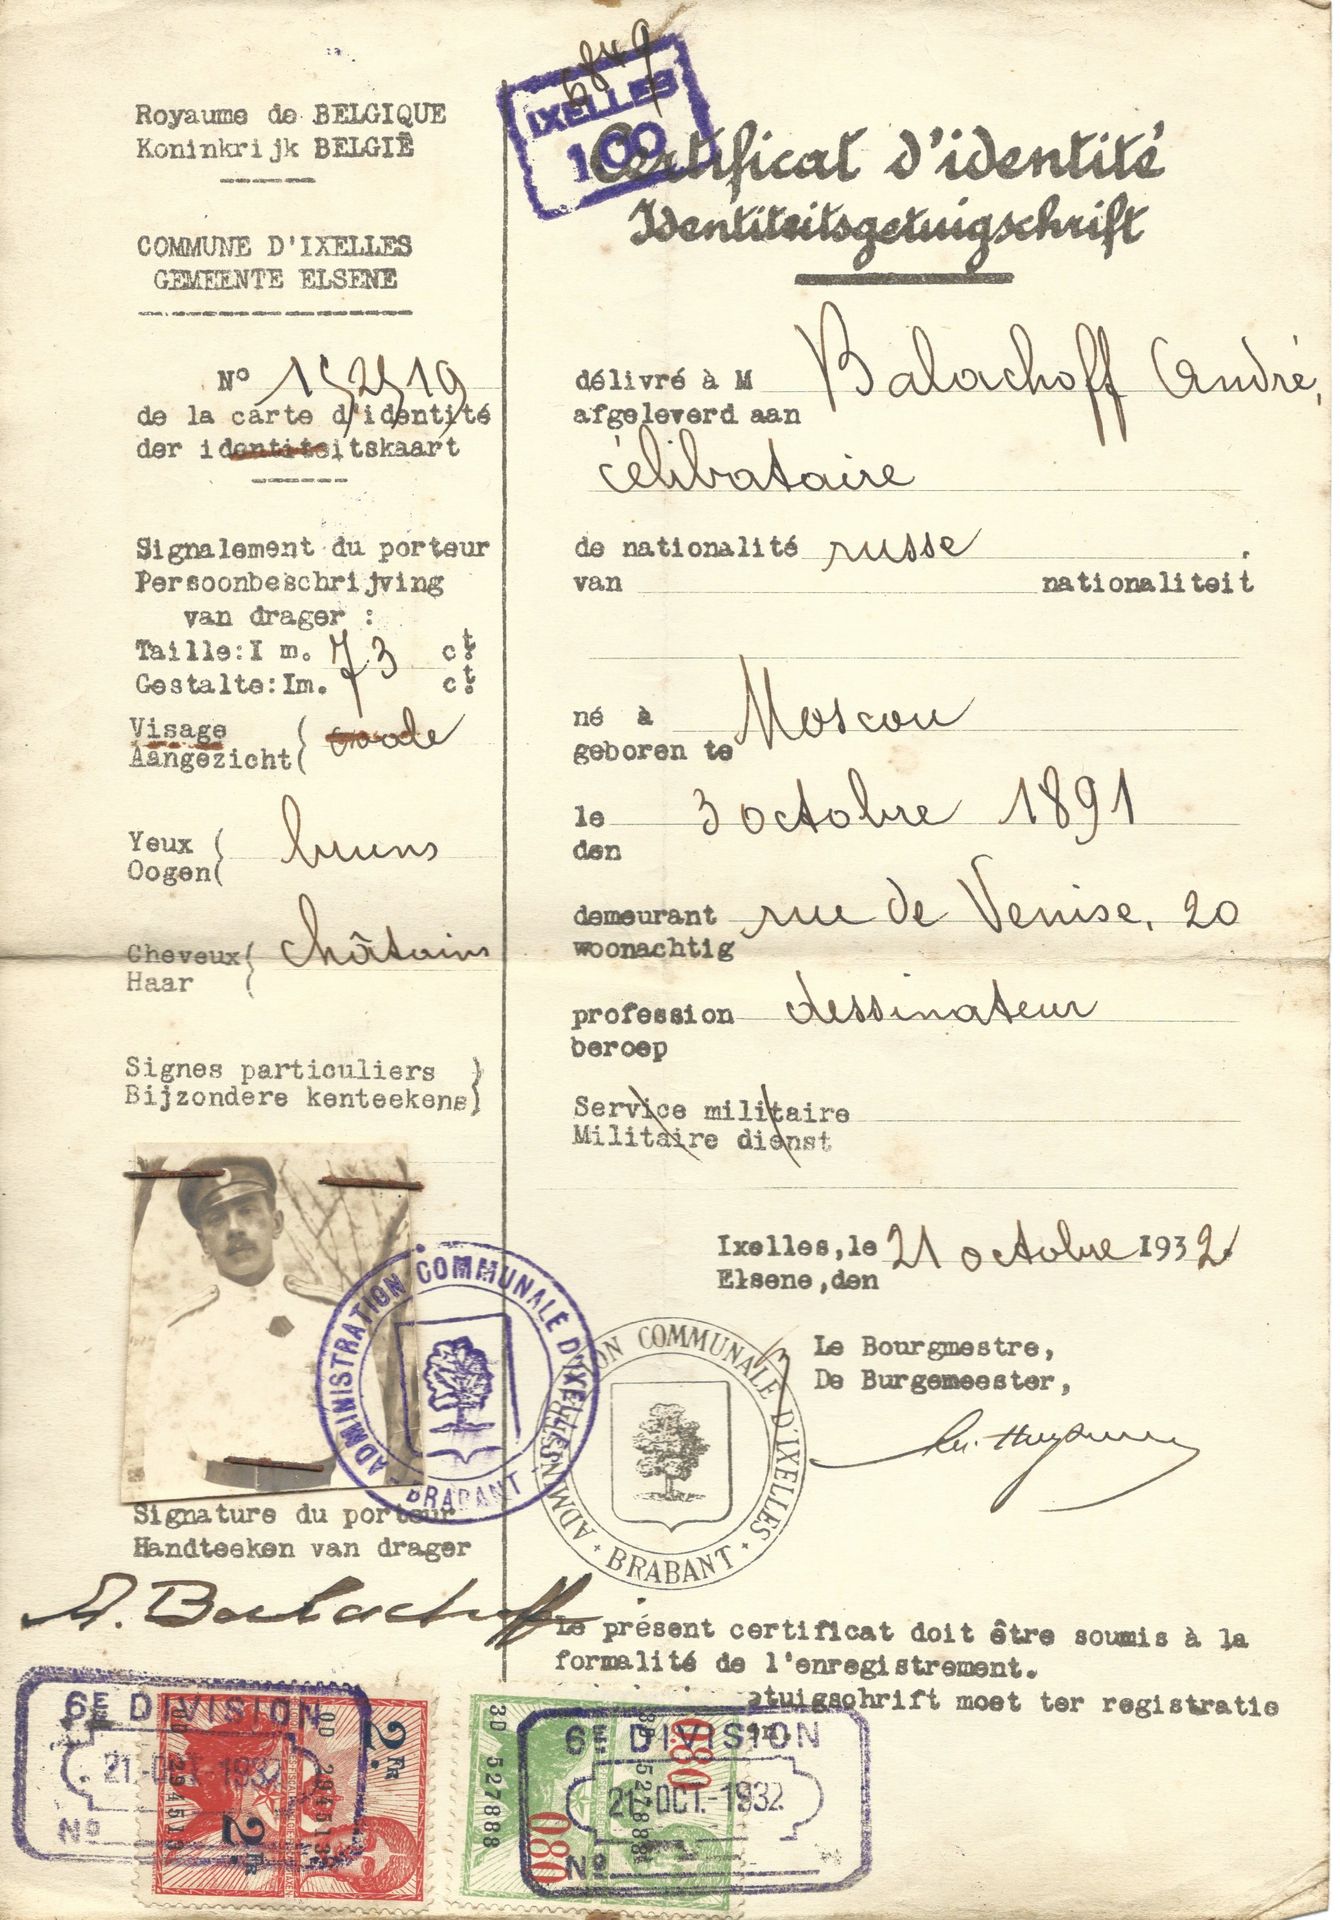 6849
IXELLES
100
Royaume de BELGIQUE
Koninkrijk BELGIË
COMMUNE D'IXELLES
GEMEENTE ELSENE
Nº 152519
de la carte d'identité
der identiteitskaart
Signalement du porteur
Persoonbeschrijving
van drager :
Taille: I m. 73 ct.
Gestalte: Im. ct.
Visage
Aangezicht ( ovale
Yeux
Oogen ( bruns
Cheveux
Haar ( châtains
Signes particuliers )
Bijzondere kenteekens)
ADMINISTRATION COMMUNALE D'IXELLES
BRABANT
Signature du porteur
Handteeken van drager
A. Balachoff
Certificat d'identité
Identiteitsgetuigschrift
délivré à M Balachoff André,
afgeleverd aan
célibataire
de nationalité russe
van nationaliteit
né à Moscou
geboren te
le 3 octobre 1891
den
demeurant rue de Venise, 20
woonachtig
profession dessinateur
beroep
Service militaire
Militaire dienst
Ixelles, le 21 octobre 1932.
Elsene, den
Le Bourgmestre,
De Burgemeester,
ADMINISTRATION COMMUNALE D'IXELLES
· BRABANT ·
Le présent certificat doit être soumis à la
formalité de l'enregistrement.
tuigschrift moet ter registratie
6E DIVISION
21-OCT.-1932
Nº
2 FR
2 FR
0D 294513
0D 294513
6E DIVISION
21-OCT.-1932
Nº
3D 527888
3D 527888
0.80
0.80